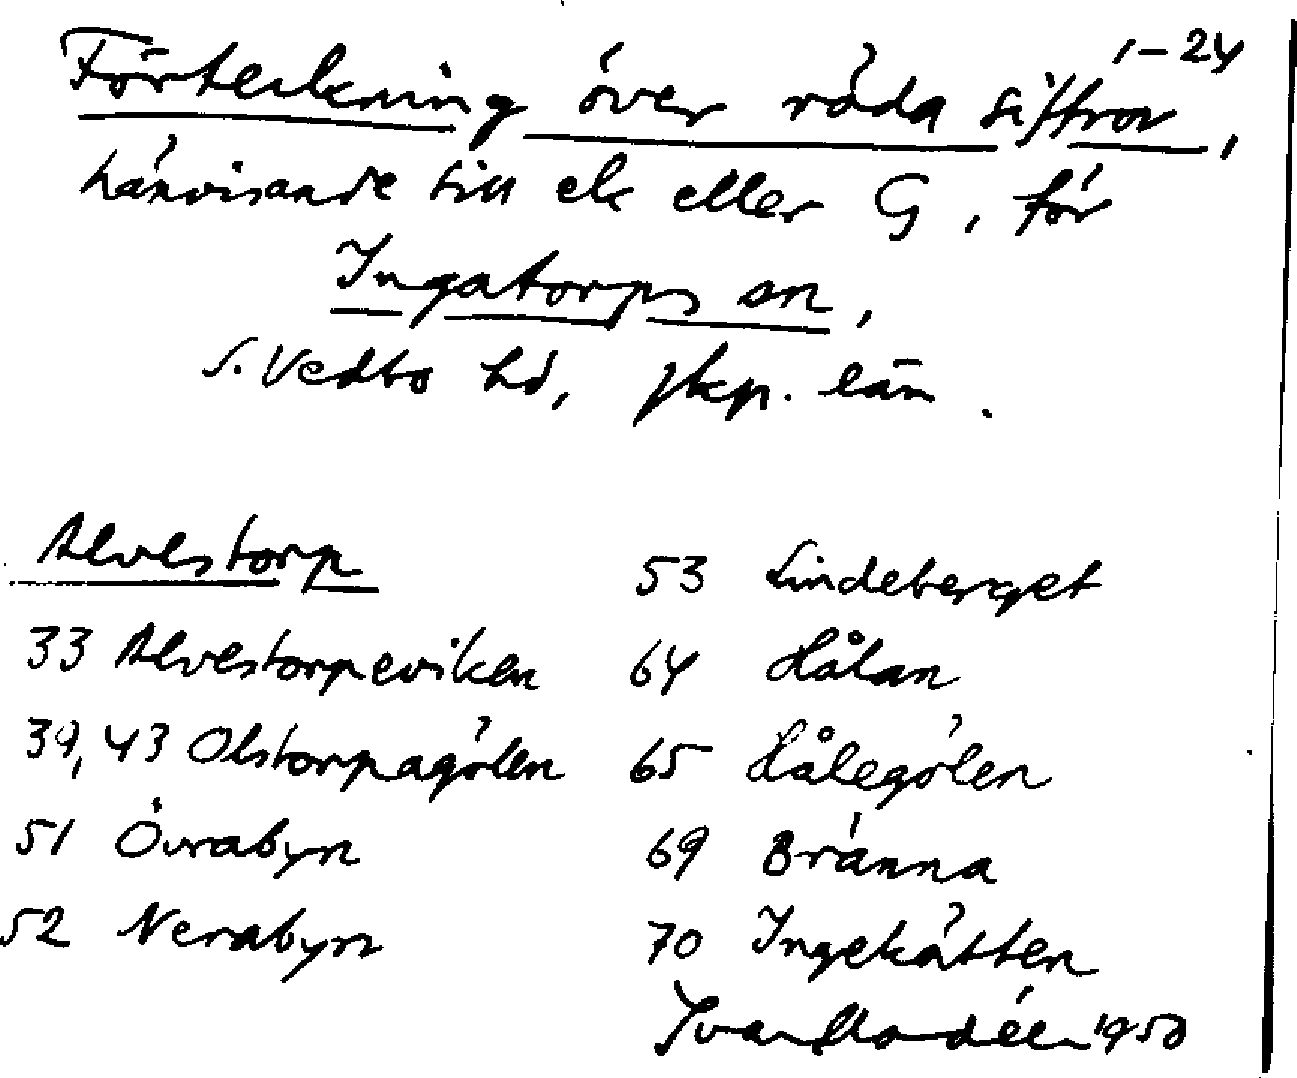 1–24
Förteckning över röda siffror,
hänvisande till ek eller G, för
Ingatorps sn,
S. Vedbo hd, Jkp. län.
Alvestorp
33 Alvestorpeviken
39, 43 Olstorpagölen
51 Övrabyn
52 Nerabyn
53 Lindeberget
64 Hålan
65 Hålegölen
69 Bränna
70 Ingekätten
Ivar Modéer 1950